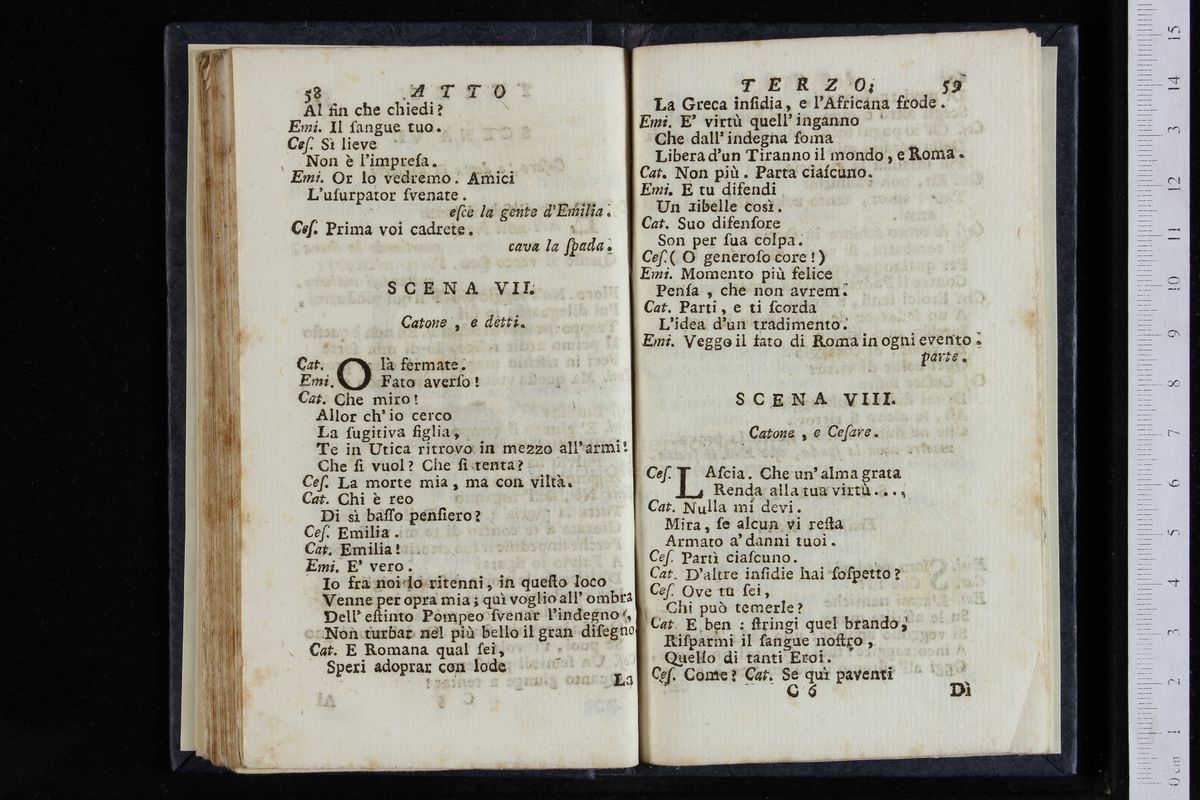 58 ATTO
Al fin che chiedi?
Emi. Il ſangue tuo.
Ceſ. Sì lieve
Non è l'impreſa.
Emi. Or lo vedremo. Amici
L'uſurpator ſvenate.
eſce la gente d'Emilia.
Ceſ. Prima voi cadrete.
cava la ſpada.
SCENA VII.
Catone, e detti.
Cat. Olà fermate.
Emi. Fato averſo!
Cat. Che miro!
Allor ch'io cerco
La fugitiva figlia,
Te in Utica ritrovo in mezzo all'armi!
Che ſi vuol? Che ſi tenta?
Ceſ. La morte mia, ma con viltà.
Cat. Chi è reo
Di sì baſſo penſiero?
Ceſ. Emilia.
Cat. Emilia!
Emi. E' vero.
Io fra noi lo ritenni, in queſto loco
Venne per opra mia; quì voglio all'ombra
Dell'eſtinto Pompeo ſvenar l'indegno,
Non turbar nel più bello il gran diſegno
Cat. E Romana qual ſei,
Speri adoprar con lode
La
TERZO. 59
La Greca inſidia, e l'Africana frode.
Emi. E' virtù quell'inganno
Che dall'indegna ſoma
Libera d'un Tiranno il mondo, e Roma.
Cat. Non più. Parta ciaſcuno.
Emi. E tu difendi
Un ribelle così.
Cat. Suo difenſore
Son per ſua colpa.
Ceſ. (O generoſo core!)
Emi. Momento più felice
Penſa, che non avrem.
Cat. Parti, e ti ſcorda
L'idea d'un tradimento.
Emi. Veggo il fato di Roma in ogni evento.
parte.
SCENA VIII.
Catone, e Ceſare.
Ceſ. LAſcia. Che un'alma grata
Renda alla tua virtù....
Cat. Nulla mi devi.
Mira, ſe alcun vi reſta
Armato a'danni tuoi.
Ceſ. Partì ciaſcuno.
Cat. D'altre inſidie hai ſoſpetto?
Ceſ. Ove tu ſei,
Chi può temerle?
Cat. E ben: ſtringi quel brando,
Riſparmi il ſangue noſtro,
Quello di tanti Eroi.
Ceſ. Come? Cat. Se quì paventi
C 6 Dì
0 cm 1 2 3 4 5 6 7 8 9 10 11 12 13 14 15